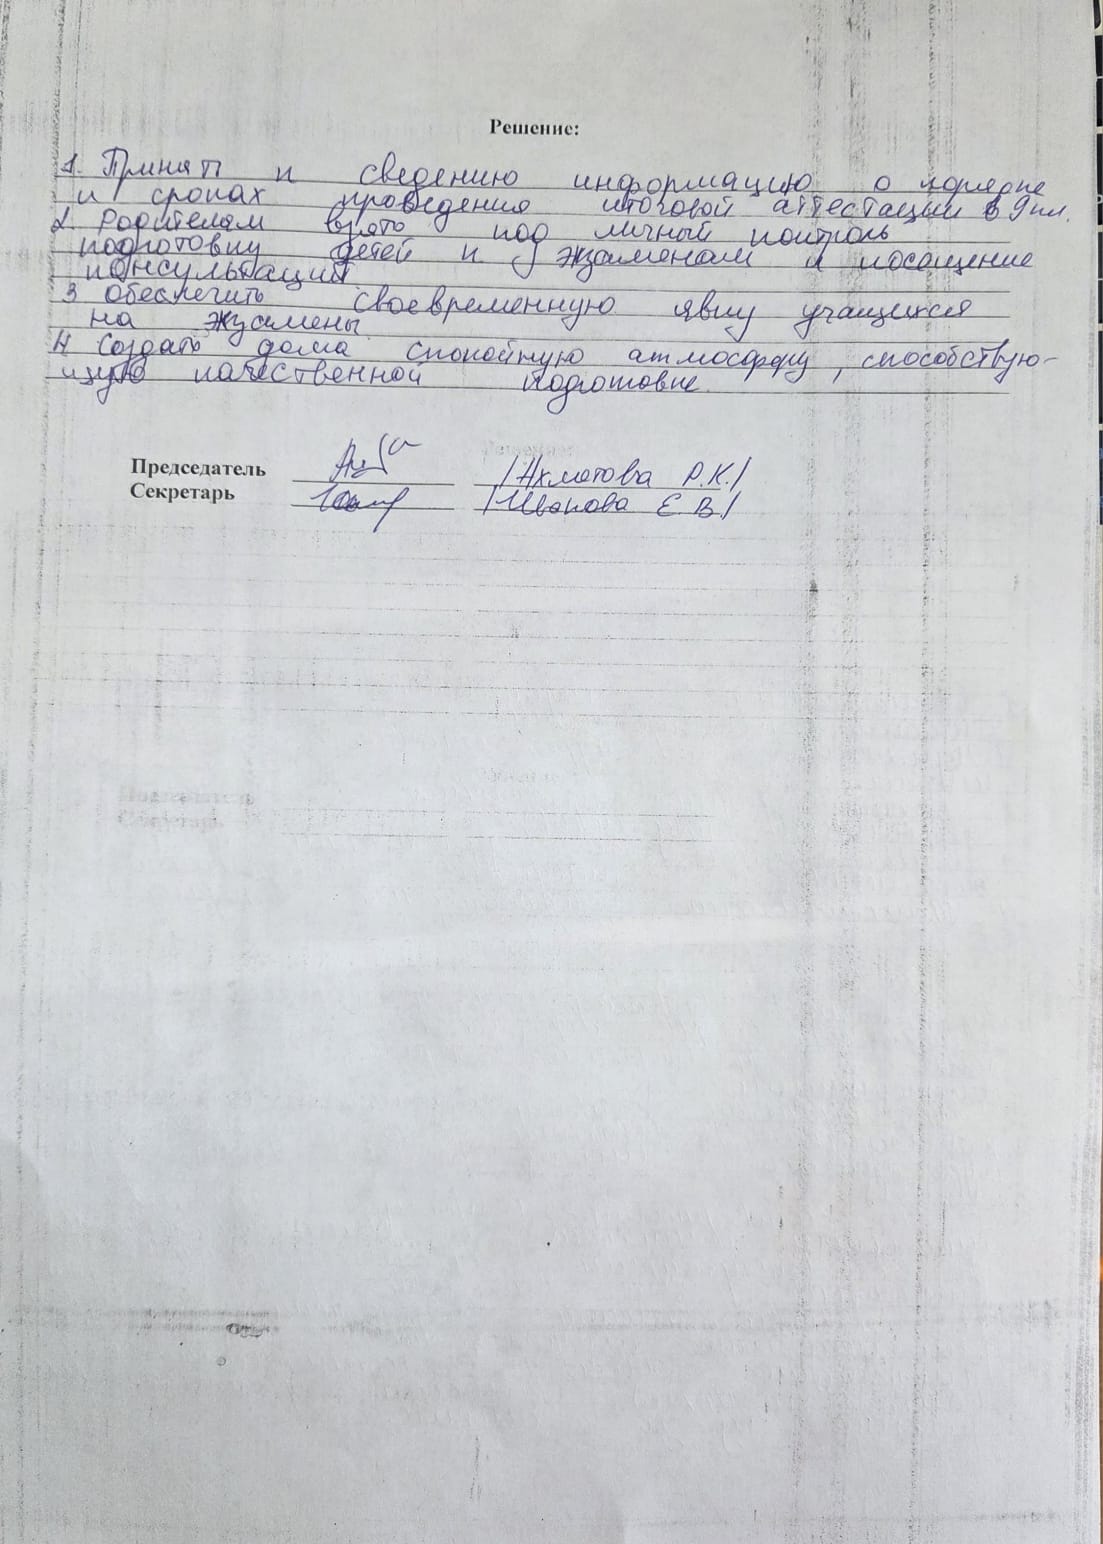 Решение:
1. Принять к сведению информацию о порядке
и сроках проведения итоговой аттестации в 9 кл.
2 Родителям взять под личный контроль
подготовку детей к экзаменам и посещение
консультаций.
3 Обеспечить своевременную явку учащихся
на экзамены
4 Создать дома спокойную атмосферу, способствую-
щую качественной подготовке.
Председатель /Ахметова Р.К./
Секретарь /Иванова Е В/